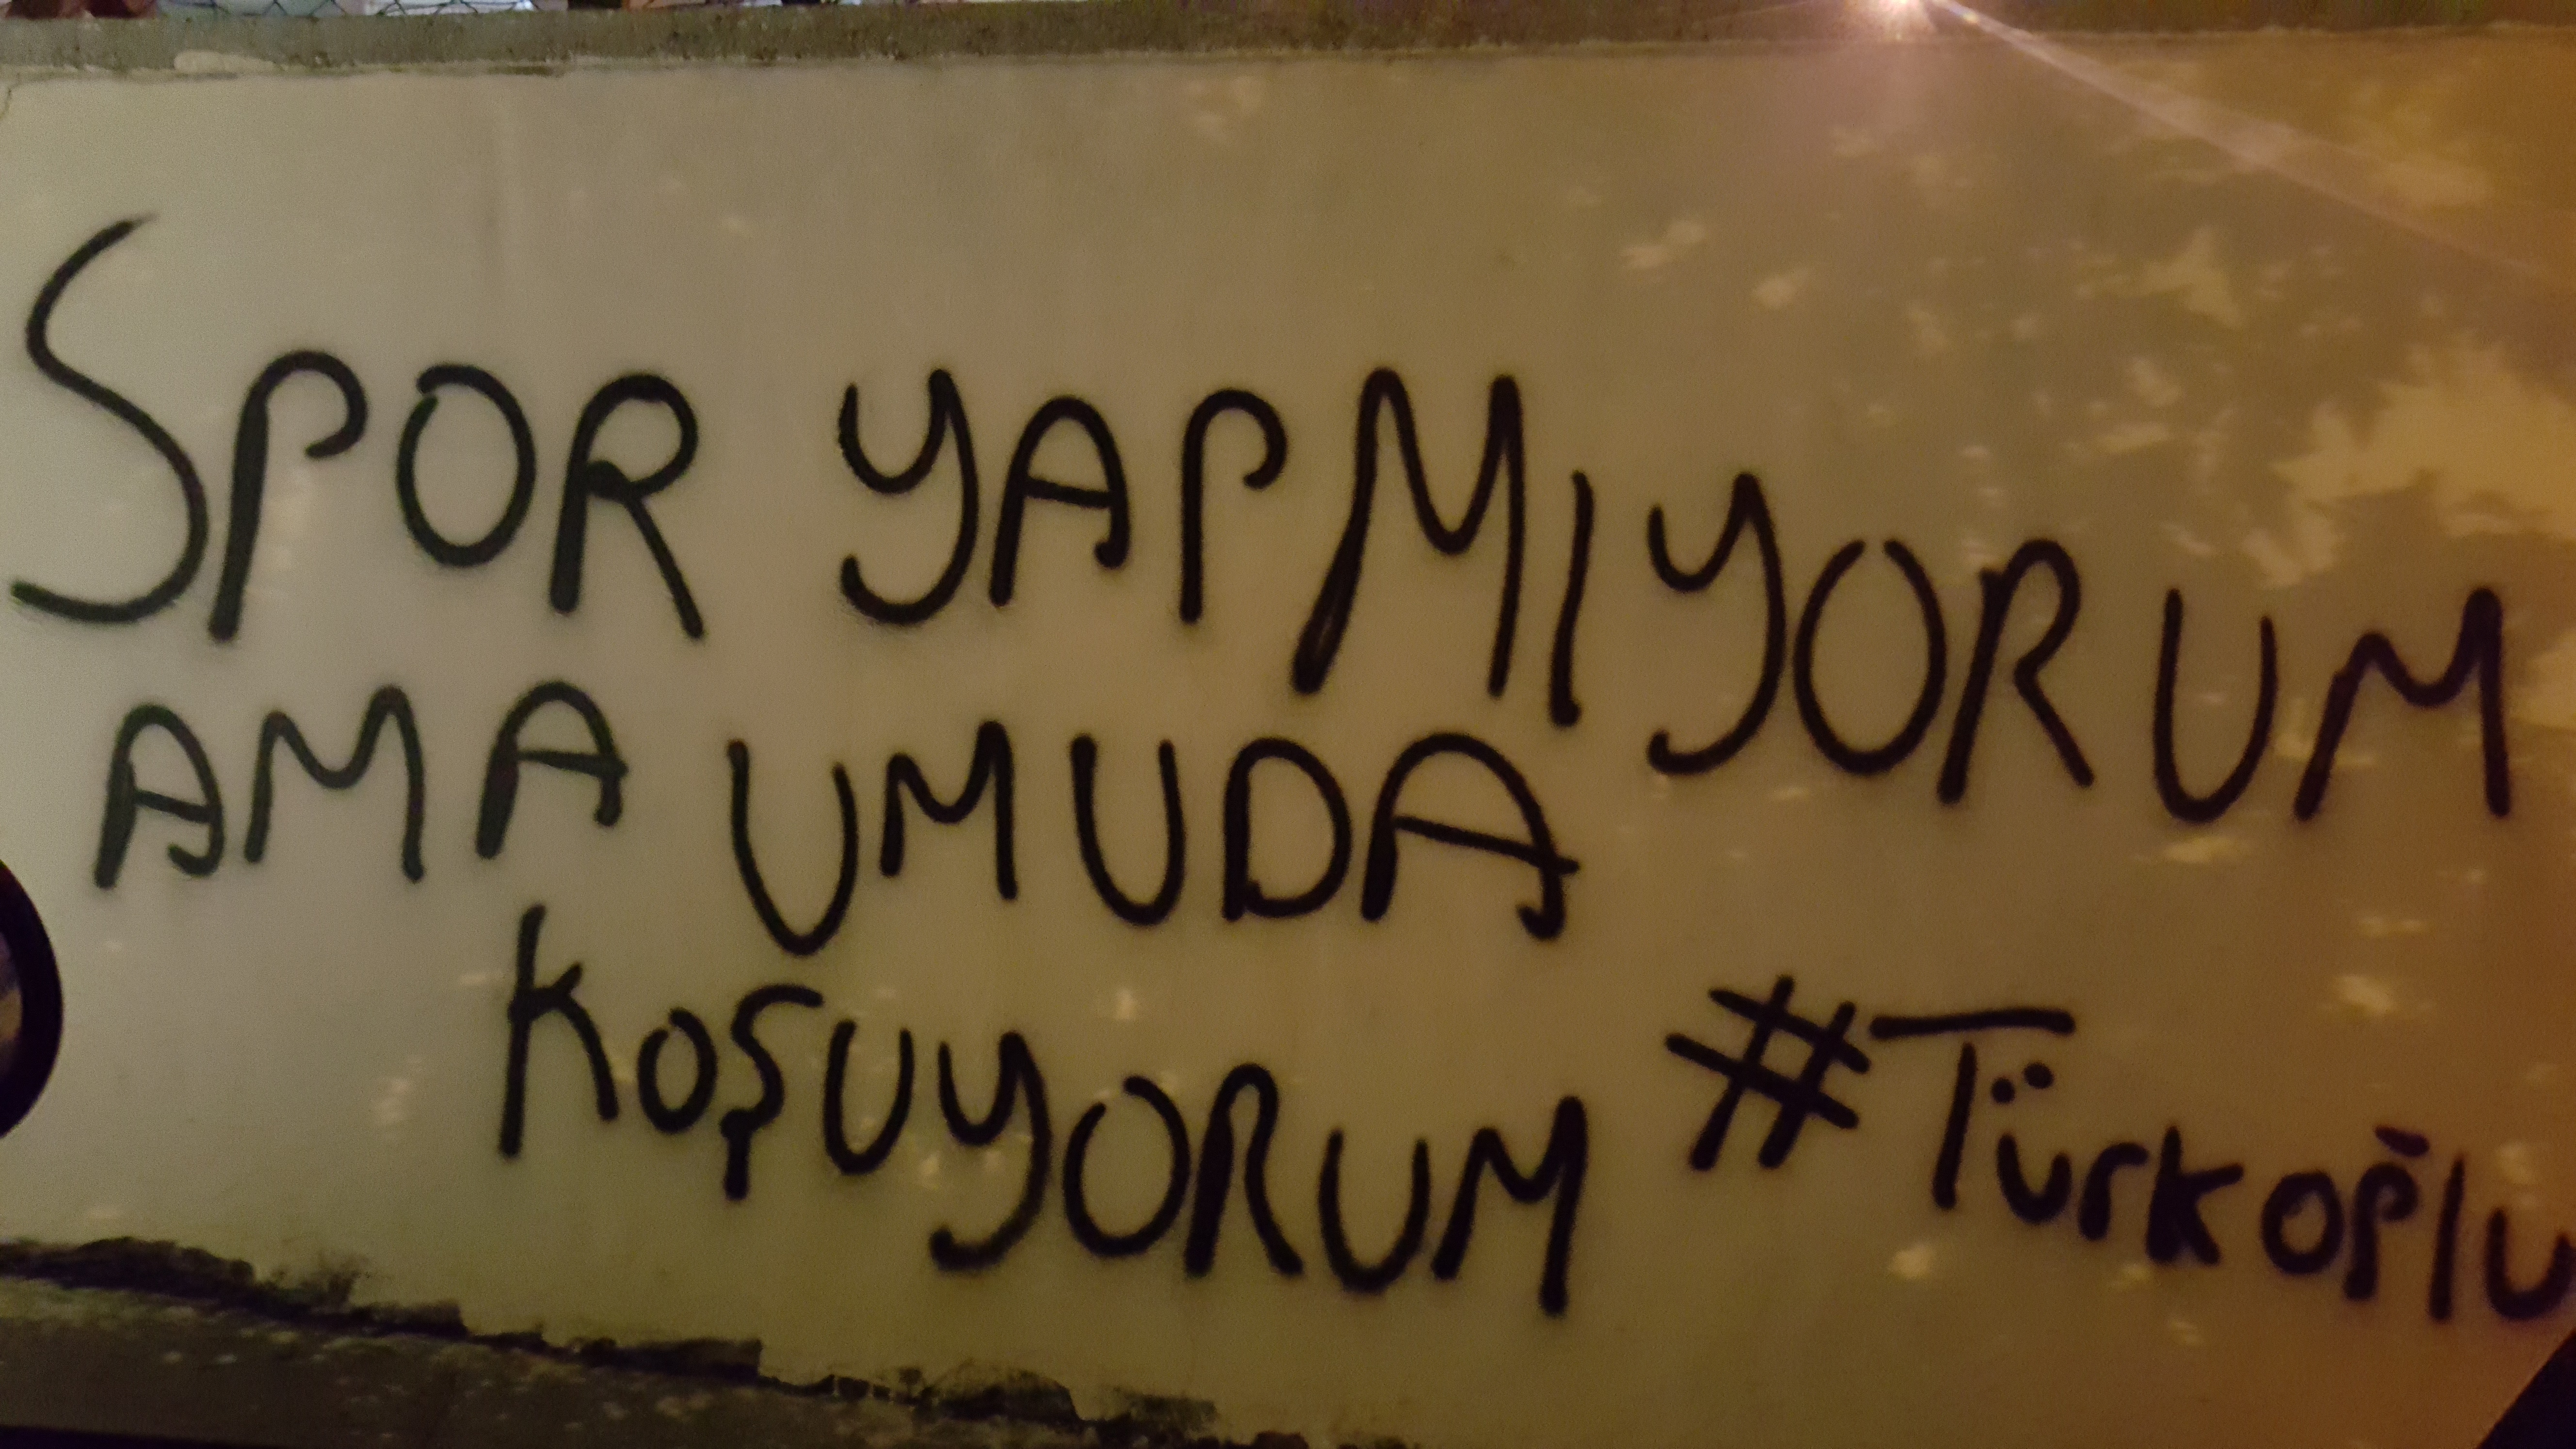 SPOR YAPMIYORUM
AMA UMUDA
KOŞUYORUM
#Türkoğlu